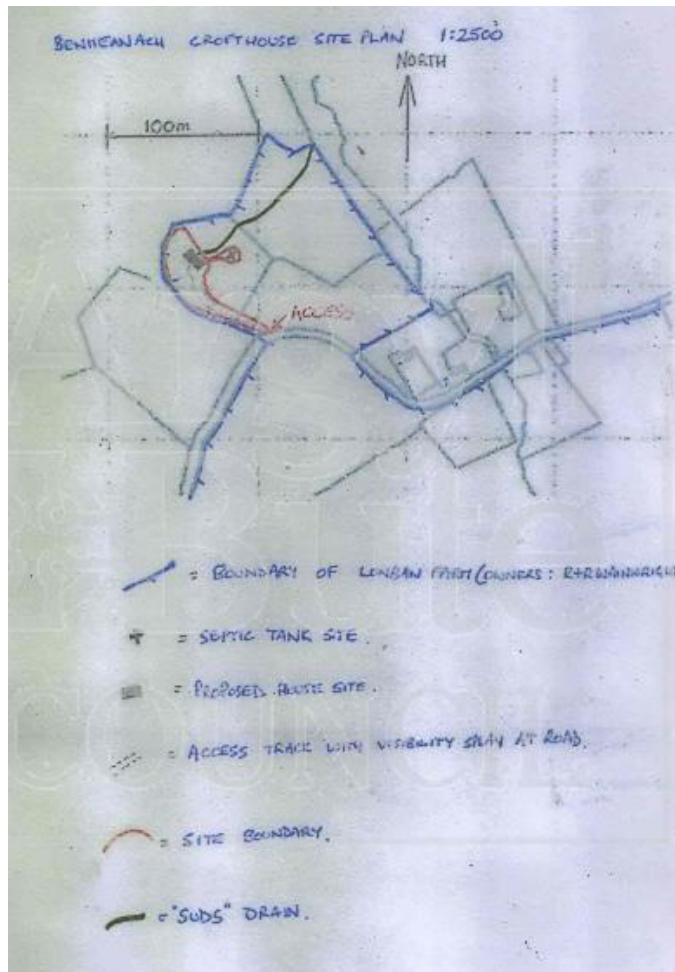 BENMEANACH CROFTHOUSE SITE PLAN 1:2500
NORTH
100m
ACCESS
= BOUNDARY OF LONBAN FARM (OWNERS: R+R WAINWRIGH
= SEPTIC TANK SITE.
= PROPOSED HOUSE SITE.
= ACCESS TRACK WITH VISIBILITY SPLAY AT ROAD.
= SITE BOUNDARY.
= "SUDS" DRAIN.
Bute
COUNCIL